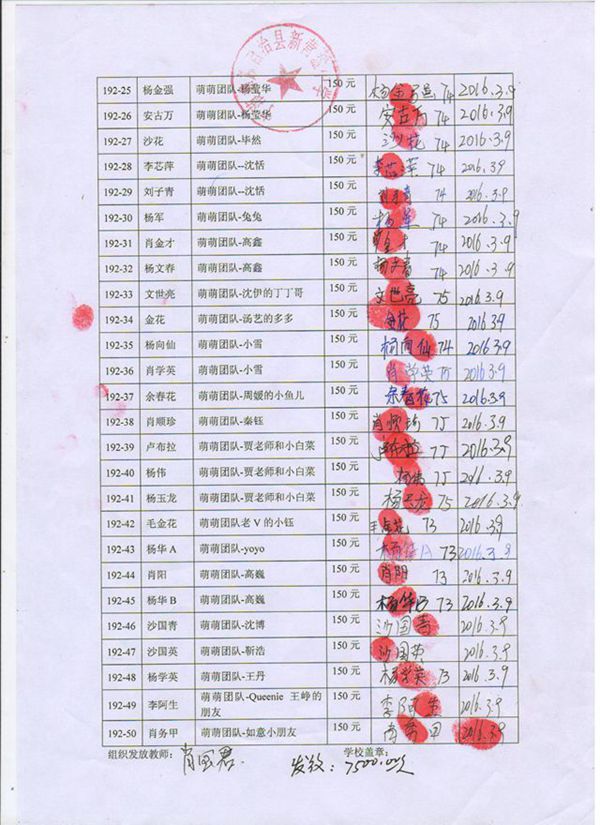 治县新营
192-25 杨金强 萌萌团队-杨莹华 150 元 杨金强 74 2016.3.9
192-26 安古万 萌萌团队-杨莹华 150 元 安古万 74 2016.3.9
192-27 沙花 萌萌团队-毕然 150 元 沙花 74 2016.3.9
192-28 李芯萍 萌萌团队--沈恬 150 元 李芯萍 74 2016.3.9
192-29 刘子青 萌萌团队--沈恬 150 元 刘子青 74 2016.3.9
192-30 杨军 萌萌团队-兔兔 150 元 杨军 74 2016.3.9
192-31 肖金才 萌萌团队-高鑫 150 元 肖金才 74 2016.3.9
192-32 杨文春 萌萌团队-高鑫 150 元 杨文春 74 2016.3.9
192-33 文世亮 萌萌团队-沈伊的丁丁哥 150 元 文世亮 75 2016.3.9
192-34 金花 萌萌团队-汤艺的多多 150 元 金花 75 2016.3.9
192-35 杨向仙 萌萌团队-小雪 150 元 杨向仙 74 2016.3.9
192-36 肖学英 萌萌团队-小雪 150 元 肖学英 75 2016.3.9
192-37 余春花 萌萌团队-周媛的小鱼儿 150 元 余春花 75 2016.3.9
192-38 肖顺珍 萌萌团队-秦钰 150 元 肖顺珍 75 2016.3.9
192-39 卢布拉 萌萌团队-贾老师和小白菜 150 元 卢布拉 75 2016.3.9
192-40 杨伟 萌萌团队-贾老师和小白菜 150 元 杨伟 75 2016.3.9
192-41 杨玉龙 萌萌团队-贾老师和小白菜 150 元 杨玉龙 75 2016.3.9
192-42 毛金花 萌萌团队老 V 的小钰 150 元 毛金花 73 2016.3.9
192-43 杨华 A 萌萌团队-yoyo 150 元 杨华A 73 2016.3.9
192-44 肖阳 萌萌团队-高巍 150 元 肖阳 73 2016.3.9
192-45 杨华 B 萌萌团队-高巍 150 元 杨华B 73 2016.3.9
192-46 沙国青 萌萌团队-沈博 150 元 沙国青 2016.3.9
192-47 沙国英 萌萌团队-靳浩 150 元 沙国英 2016.3.9
192-48 杨学英 萌萌团队-王丹 150 元 杨学英 73 2016.3.9
192-49 李阿生 萌萌团队-Queenie 王峥的 150 元 李阿生 2016.3.9
朋友
192-50 肖务甲 萌萌团队-如意小朋友 150 元 肖务甲 2016.3.9
组织发放教师： 肖国君 学校盖章：
发放：7500.00元